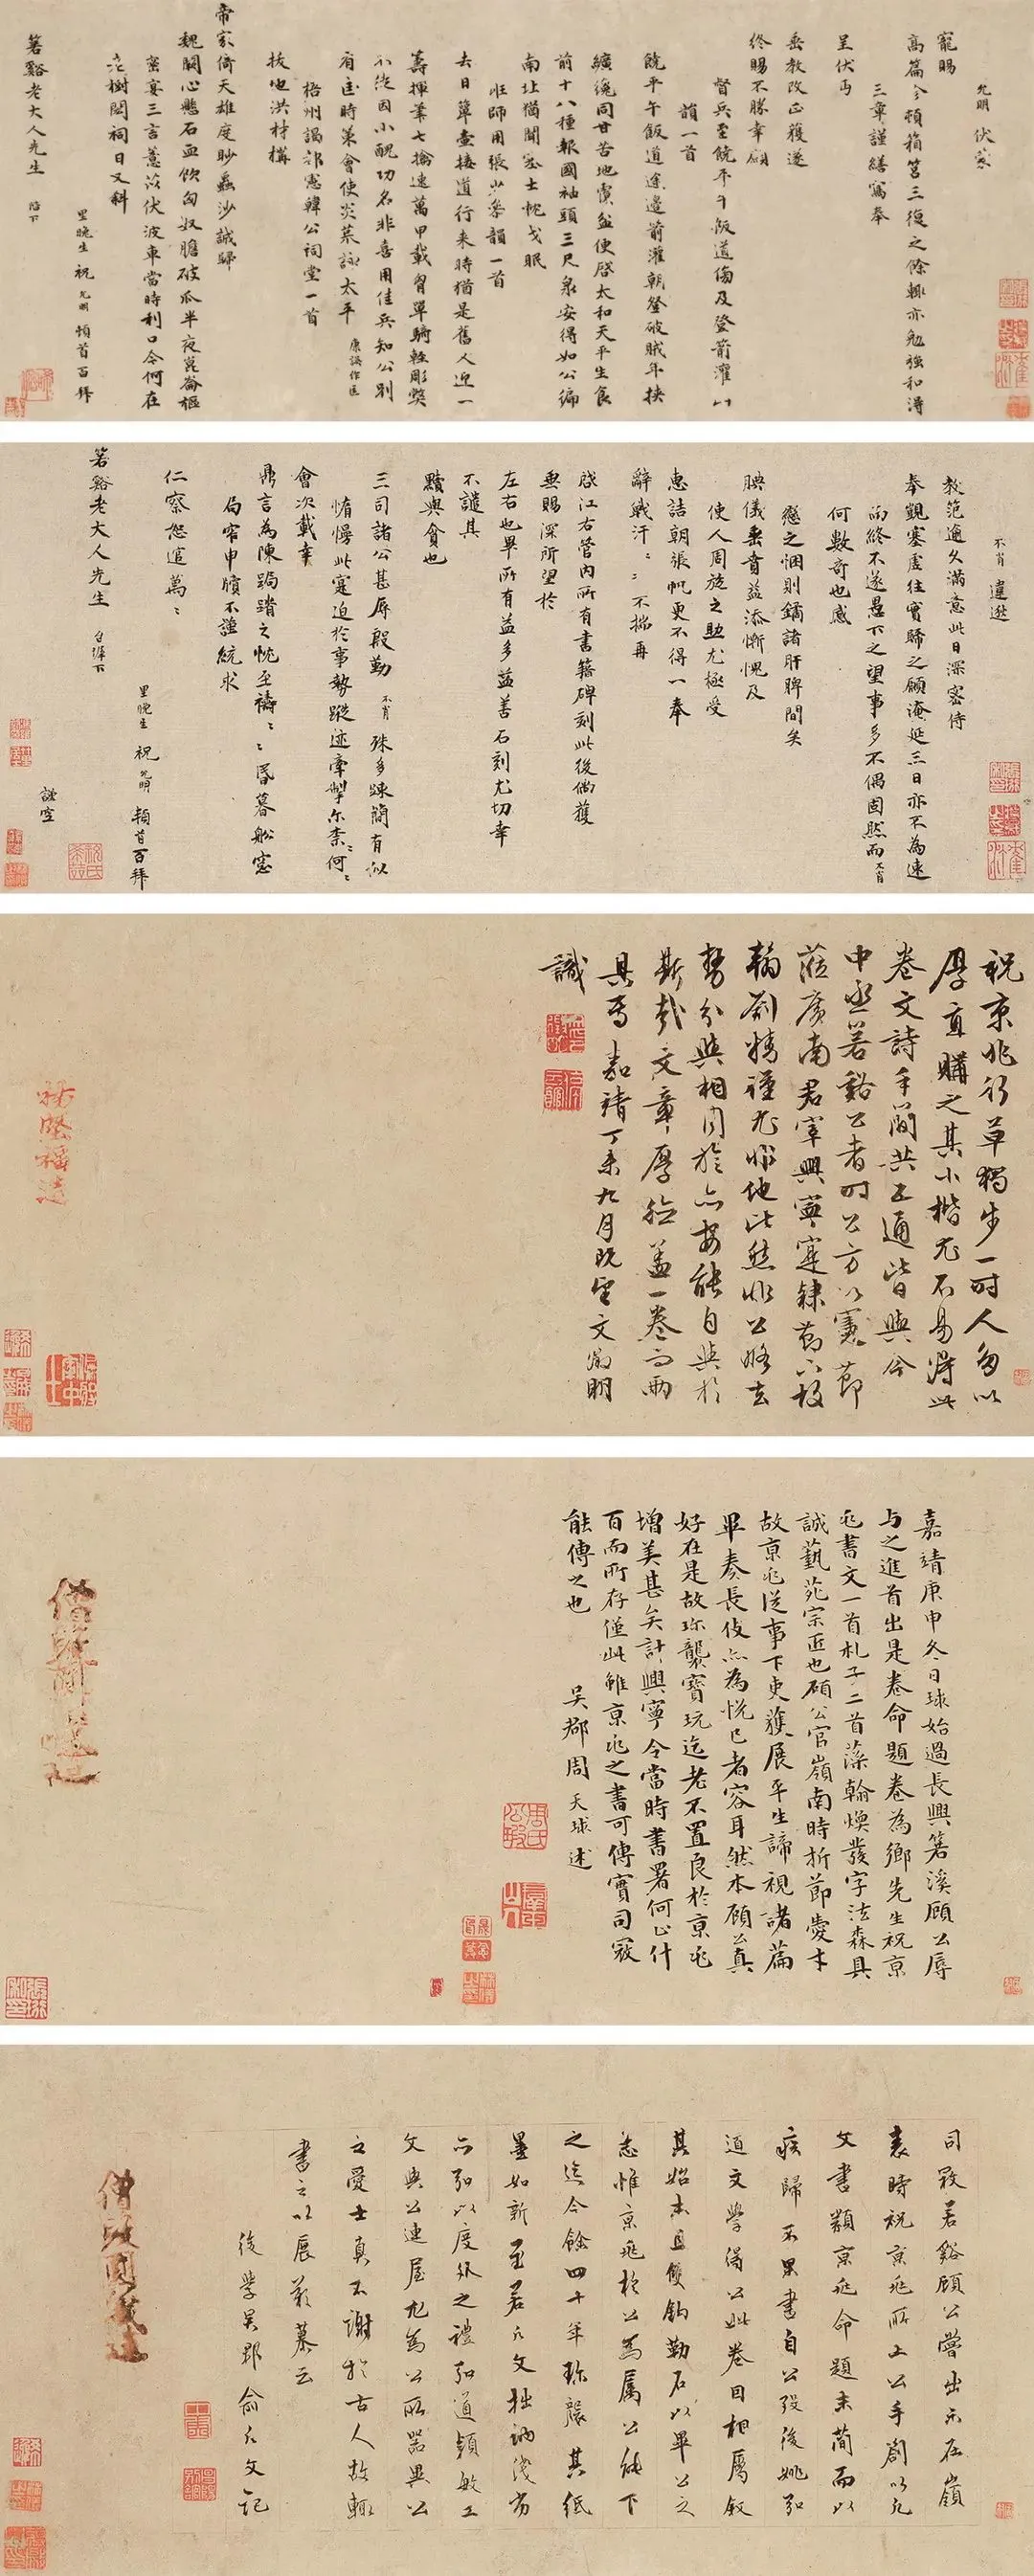 允明 伏蒙
寵賜
高篇今頓箱筥三復之餘輒亦勉強和得
三章謹繕寫奉
呈伏丐
垂教改正獲遂
終賜不勝幸願
督兵至饒平午飯道傷及登箭灌
韻一首
饒平午飯道途邊箭灌朝登破賊年挾
纊總同甘苦地裹盆便啓太和天平生食
前十八種報國袖頭三尺泉安得如公編
南北猶聞戈士枕戈眠
班師用張韻一首
去日簞壺接道行來時猶是舊人迎一
籌揮羣七擒速萬甲載胷單騎輕彫獎
不從因小醜功名非喜用佳兵知公別
有匡時策會使炎荒詠太平
梧州謁韓公祠堂一首
拔地洪材構
帝家倚天雄度眇蟲沙誠歸
魏闕心懸石血飲匈奴膽破瓜半夜崑崙樞
蜜宴三言薏苡伏波車當時利口今何在
樹閟祠日又斜
箬谿老大人先生 階下
里晚生祝允明頓首百拜
不肖 違遠
教範逾久滿意此日深密侍
奉觀塞虛往實歸之願淹延三日亦不為速
而終不遂愚下之望事多不偶固然而不肖
何數奇也感
戀之悃則鏤諸肝脾間矣
腆儀垂賁益添慚愧及
使人周旋之助尤極受
惠詰朝張帆更不得一奉
辭戰汗：：不揣再
啟江右管內所有書籍碑刻此後倘獲
垂賜深所望於
左右也畢所有益多益善石刻尤切幸
不譴其
黷與貪也
三司諸公甚辱殷勤不肖殊多疎簡有似
惰慢此寔迫於事勢蹤迹牽掣尔柰：何：
會次載幸
鼎言為陳跼蹐之忱至禱：：昏暮舩窓
局窄申牘不謹統求
仁察恕宧萬：
箬谿老大人先生 台座下
里晚生祝允明頓首百拜
謹空
祝京兆行草獨步一時人多以
厚直購之其小楷尤不易得此
卷文詩手簡共五通皆與今
中丞箬谿公者時公方以憲節
蒞廣南君宰興寧寔隸節下故
翰劄精謹尤非他比然非公略去
勢分與相周旋亦安能自與於
斯哉文章厚德蓋一卷而兩
具焉嘉靖丁未九月既望文徵明
識
嘉靖庚申冬日球始過長興箬溪顧公辱
与之進首出是卷命題卷為鄉先生祝京
兆書文一首札子二首藻翰煥發字法森具
誠藝苑宗匠也顧公官嶺南時折節愛才
故京兆從事下吏獲展平生諦視諸篇
畢奏長伎亦為悅己者容耳然本顧公真
好在是故珎襲寶玩迄老不置良於京兆
增美甚矣計興寧令當時書署何止什
百而所存僅此雖京兆之書可傳實司寇
能傳之也
吳郡周天球述
司寇若谿顧公嘗出示在嶺
表時祝京兆所上公手劄以允
文書類京兆命題末簡而以
疾歸不果書自公歿後姚弘
道文學得公此卷因相屬叙
其始末且雙鈎勒石以畢公之
志惟京兆於公為屬公能下
之迄今餘四十年珎襲其紙
墨如新至若允文拙訥淺劣
而弘以度外之禮弘道穎敏工
文與公連屋尤為公所器異公
之愛士真不謝於古人故輒
書之以展欵慕云
後學吳郡俞允文記